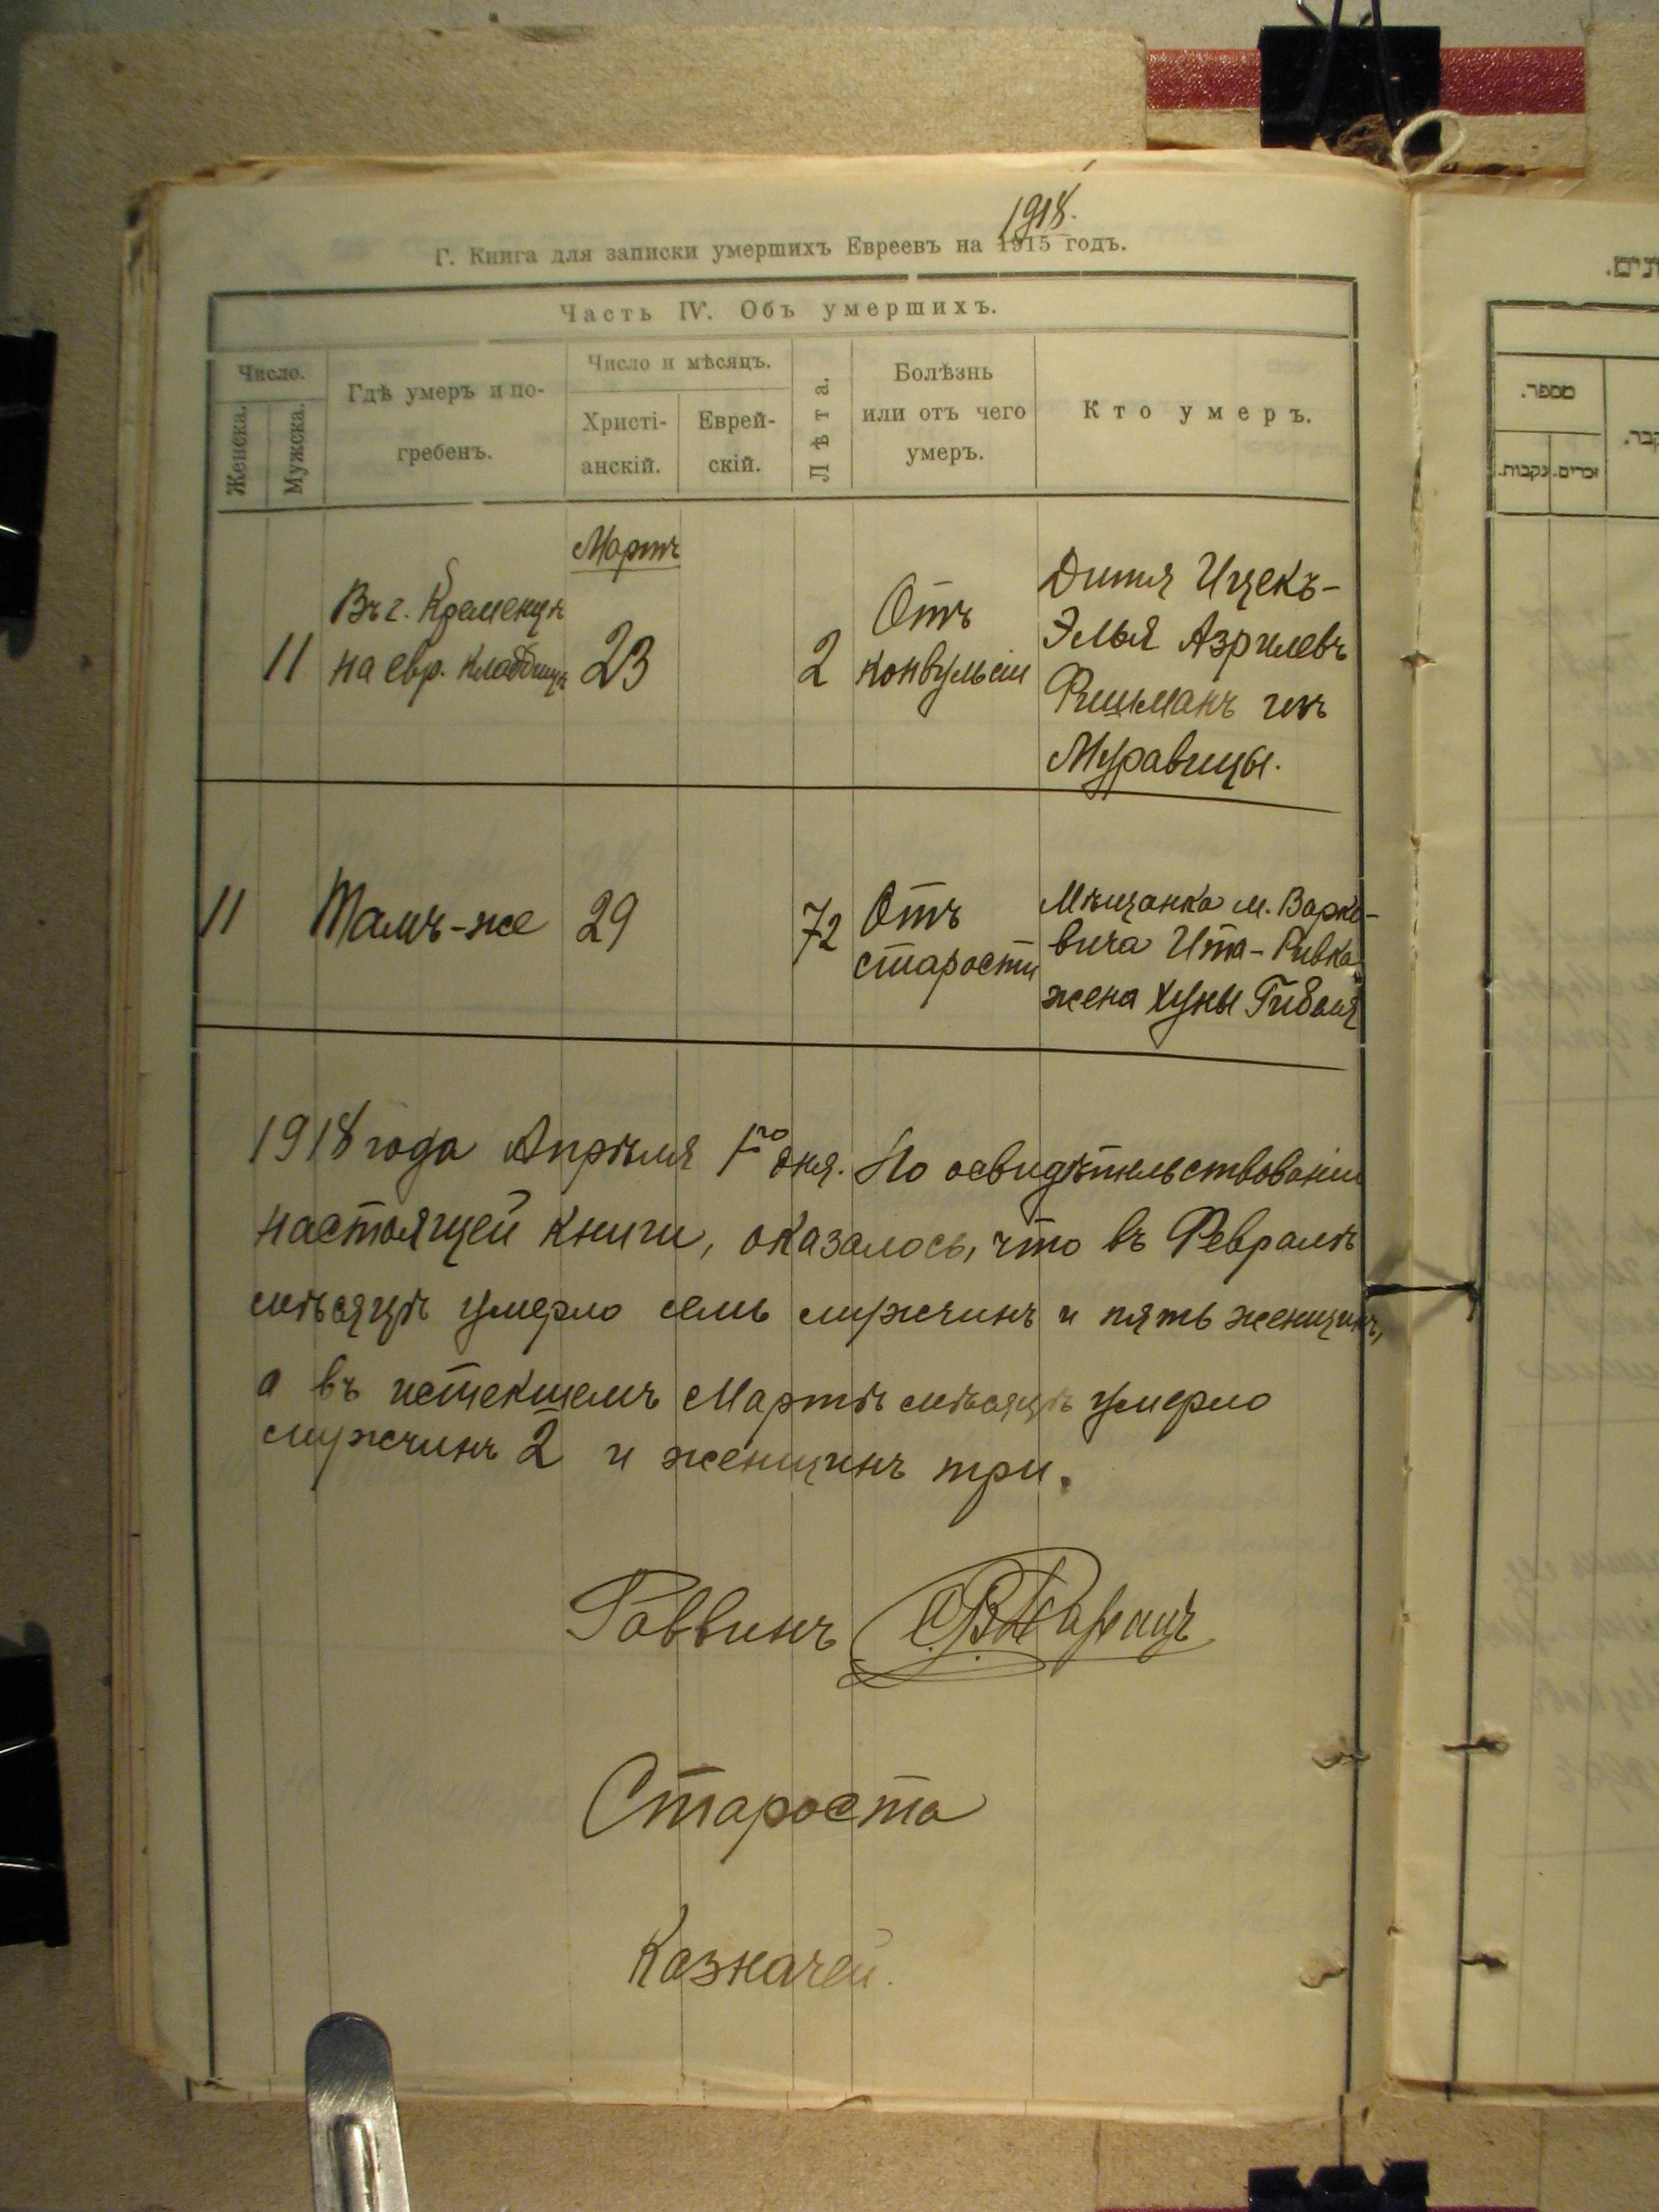 1918.
Г. Книга для записки умершихъ Евреевъ на 1915 годъ.
Часть IV. Объ умершихъ.
Число.
Женска.
Мужска.
Гдѣ умеръ и по-
гребенъ.
Число и мѣсяцъ.
Христі-
анскій.
Еврей-
скій.
Лѣта.
Болѣзнь
или отъ чего
умеръ.
Кто умеръ.
Мартъ
11
Въ г. Кременцѣ
на евр. кладбищѣ
23
2
Отъ
конвульсіи
Дитя Ицекъ-
Элья Азрилевъ
Фишманъ изъ
Муравицы.
11
Тамъ-же
29
72
Отъ
старости
Мѣщанка м. Варко-
вича Ита-Ривка
жена Хуны
1918 года Апрѣля 1го дня. По освидѣтельствованіи
настоящей книги, оказалось, что въ Февралѣ
мѣсяцѣ умерло семь мужчинъ и пять женщинъ,
а въ истекшемъ Мартѣ мѣсяцѣ умерло
мужчинъ 2 и женщинъ три.
Раввинъ
Староста
Казначей.
מספר.
זכרים.
נקבות.